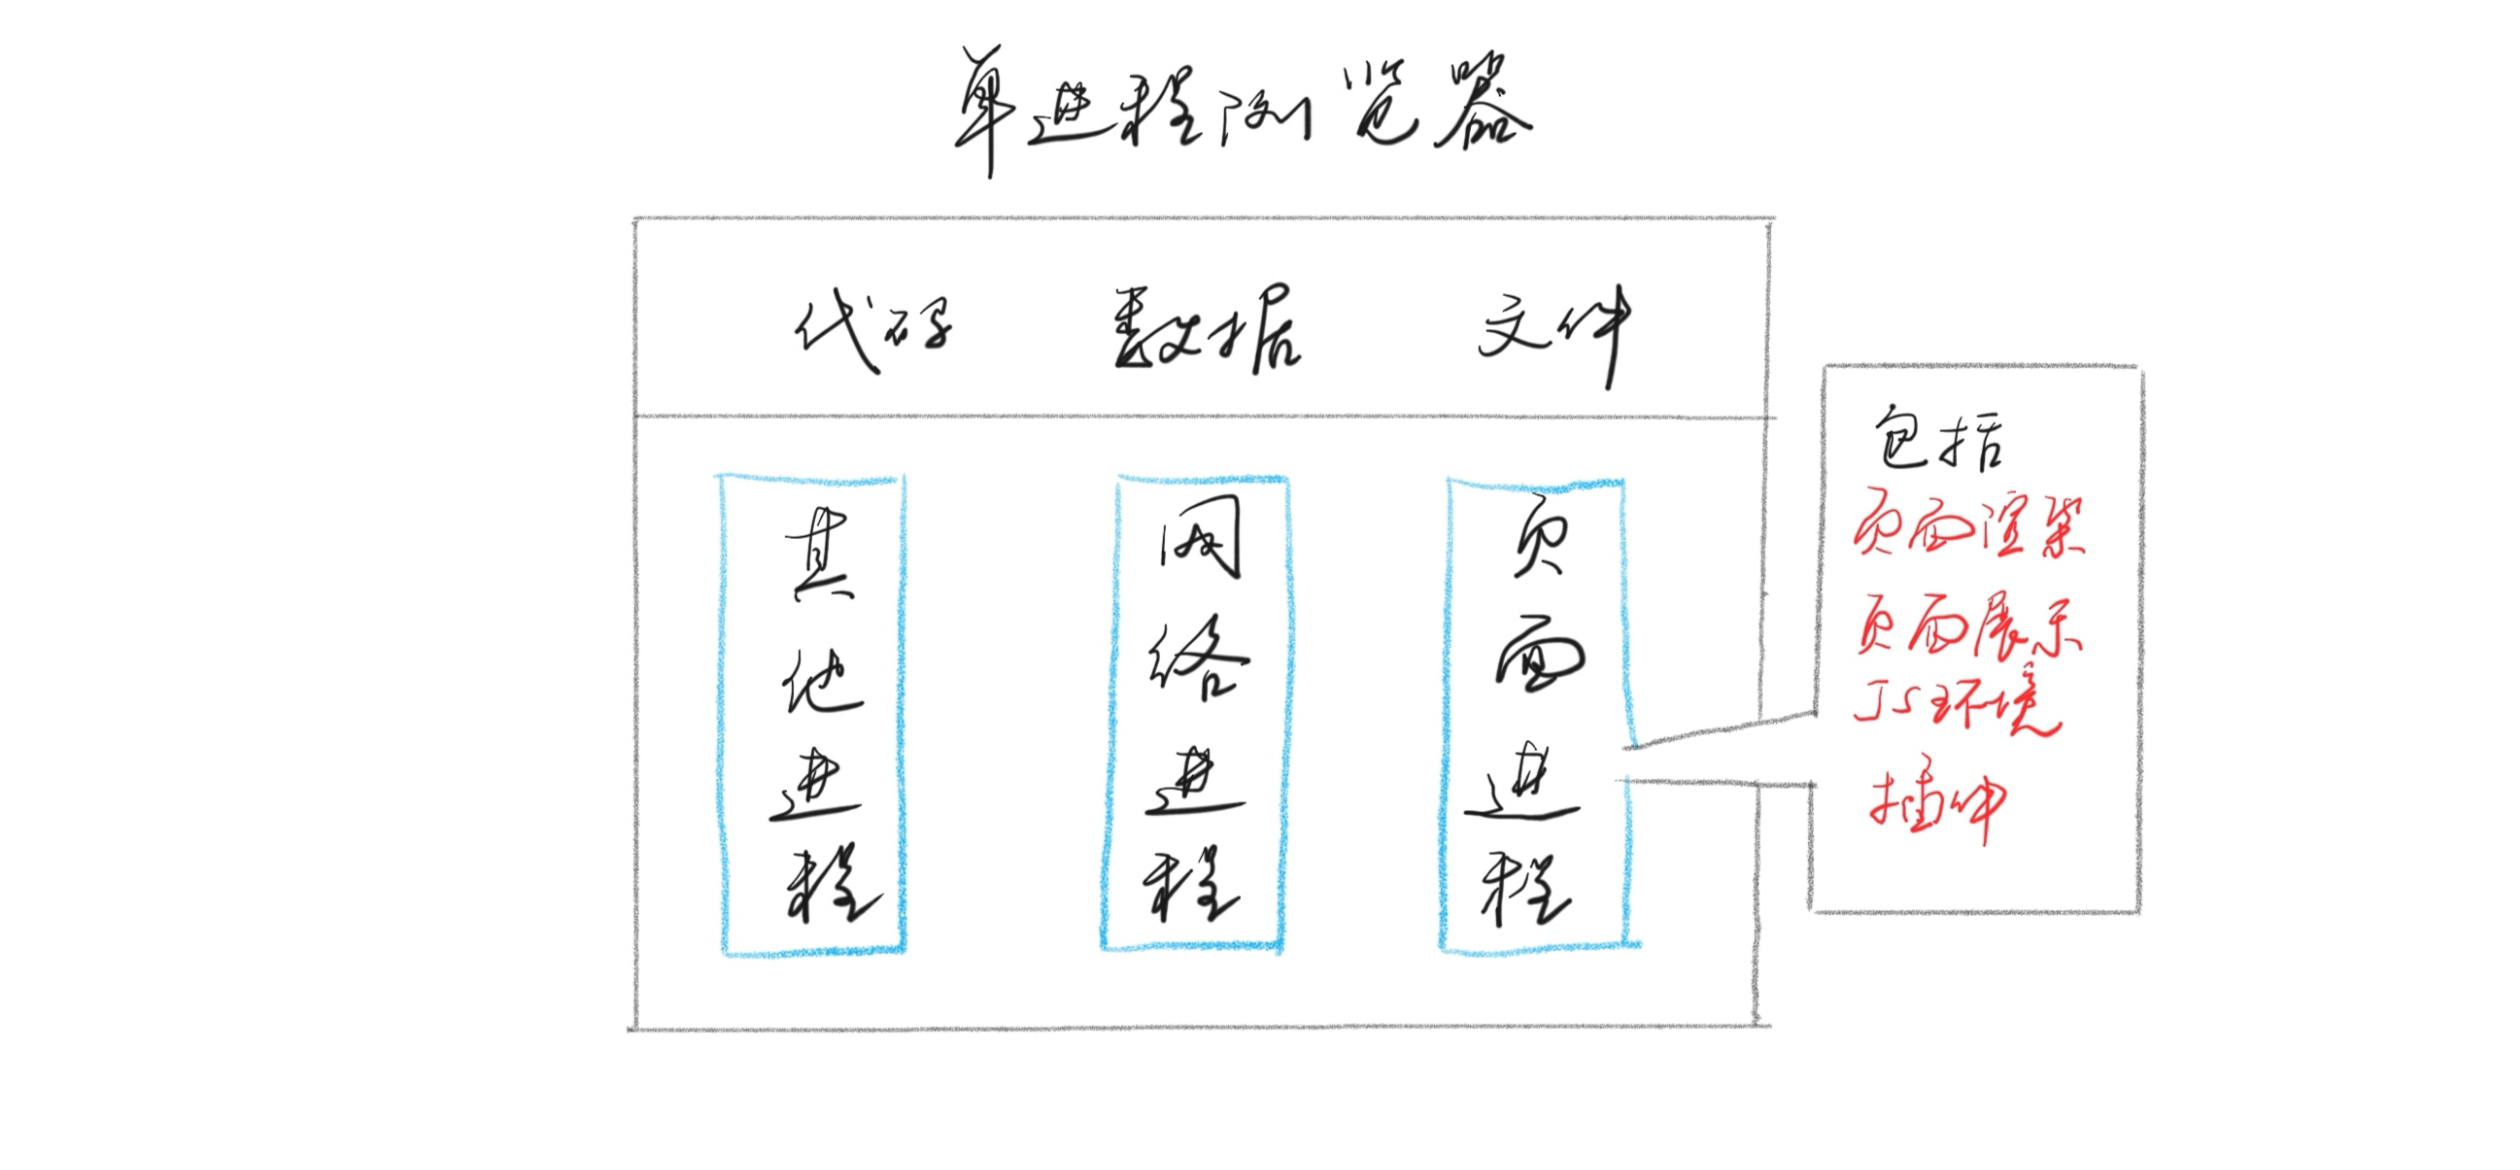 单进程浏览器
代码 数据 文件
其他进程
网络进程
页面进程
包括
页面渲染
页面展示
JS环境
插件